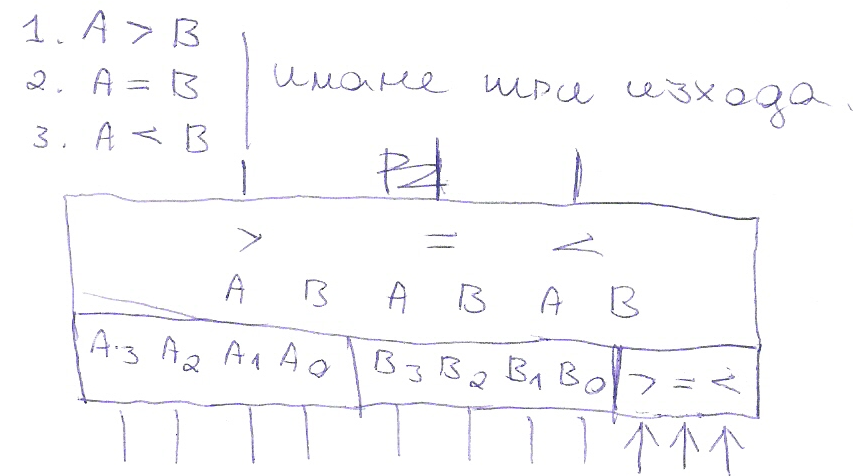 1. A > B
2. A = B
3. A < B
имаме три изхода.
> = <
A B A B A B
A3 A2 A1 A0 B3 B2 B1 B0 > = <